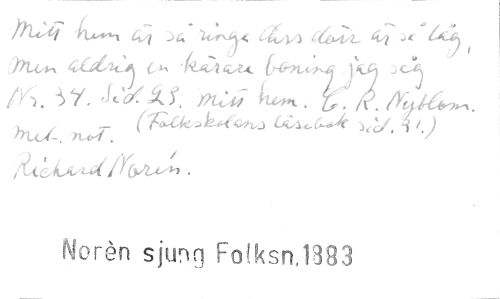 Mitt hem är så ringa dess dörr är så låg,
men aldrig en kärare boning jag såg
Nr. 34. Sid. 23. Mitt hem. C. R. Nyblom.
mel. not. (Folkskolans läsebok sid. 31.)
Richard Norén.
Norèn sjung Folksn,1883